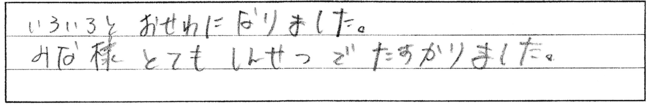 いろいろと おせわに なりました。
みな様 とても しんせつで たすかりました。